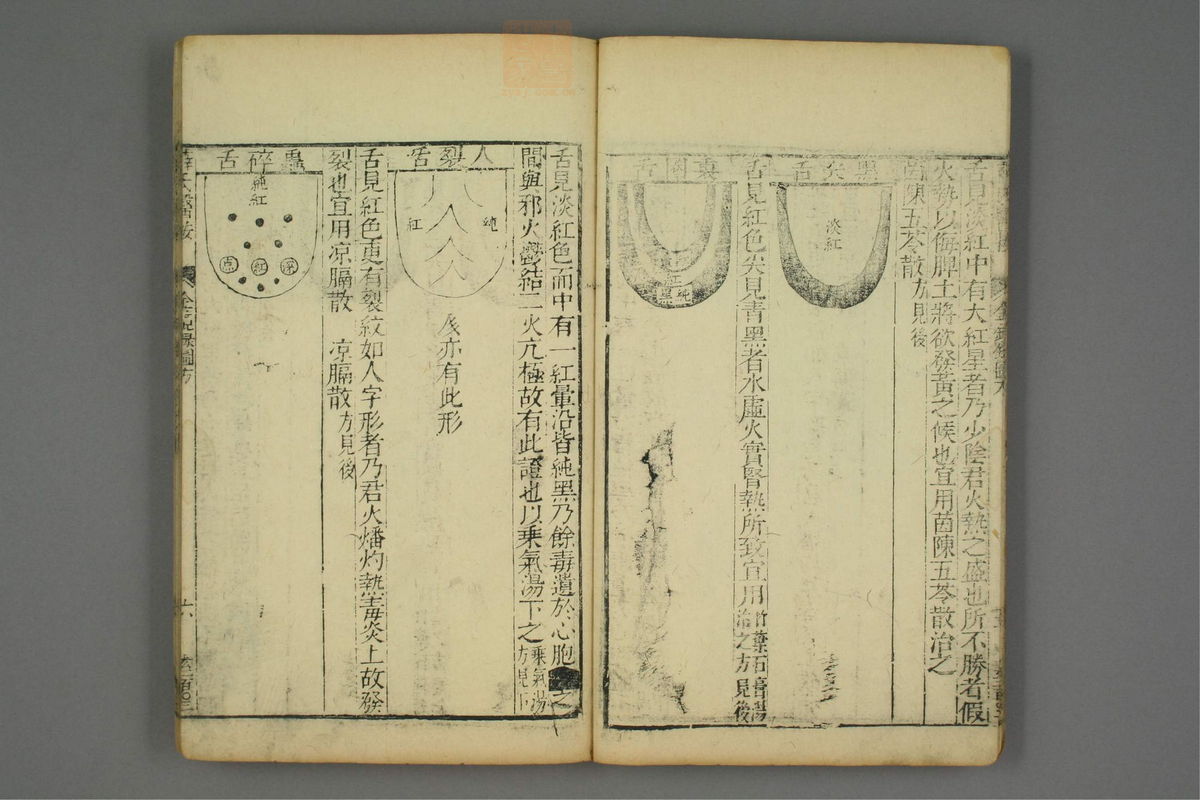 舌見淡紅中有大紅星者乃少陰君火熱之盛也所不勝者假
火熱以侮脾土將欲發黃之候也宜用茵陳五苓散治之
茵陳五苓散方見後
黑尖舌
淡紅
舌見紅色尖見青黑者水虛火實腎熱所致宜用竹葉石膏湯治之方見後
裏圈舌
紅
純黑
舌見淡紅色而中有一紅暈沿皆純黑乃餘毒遺於心胞之
間與邪火鬱結二火亢極故有此證也以承氣湯下之承氣湯方見下
人裂舌
純
紅
亦有此形
舌見紅色更有裂紋如人字形者乃君火燔灼熱毒炎上故發
裂也宜用凉膈散 凉膈散方見後
蟲碎舌
純紅
紅
点
薛氏醫按
金鏡錄圖方
六